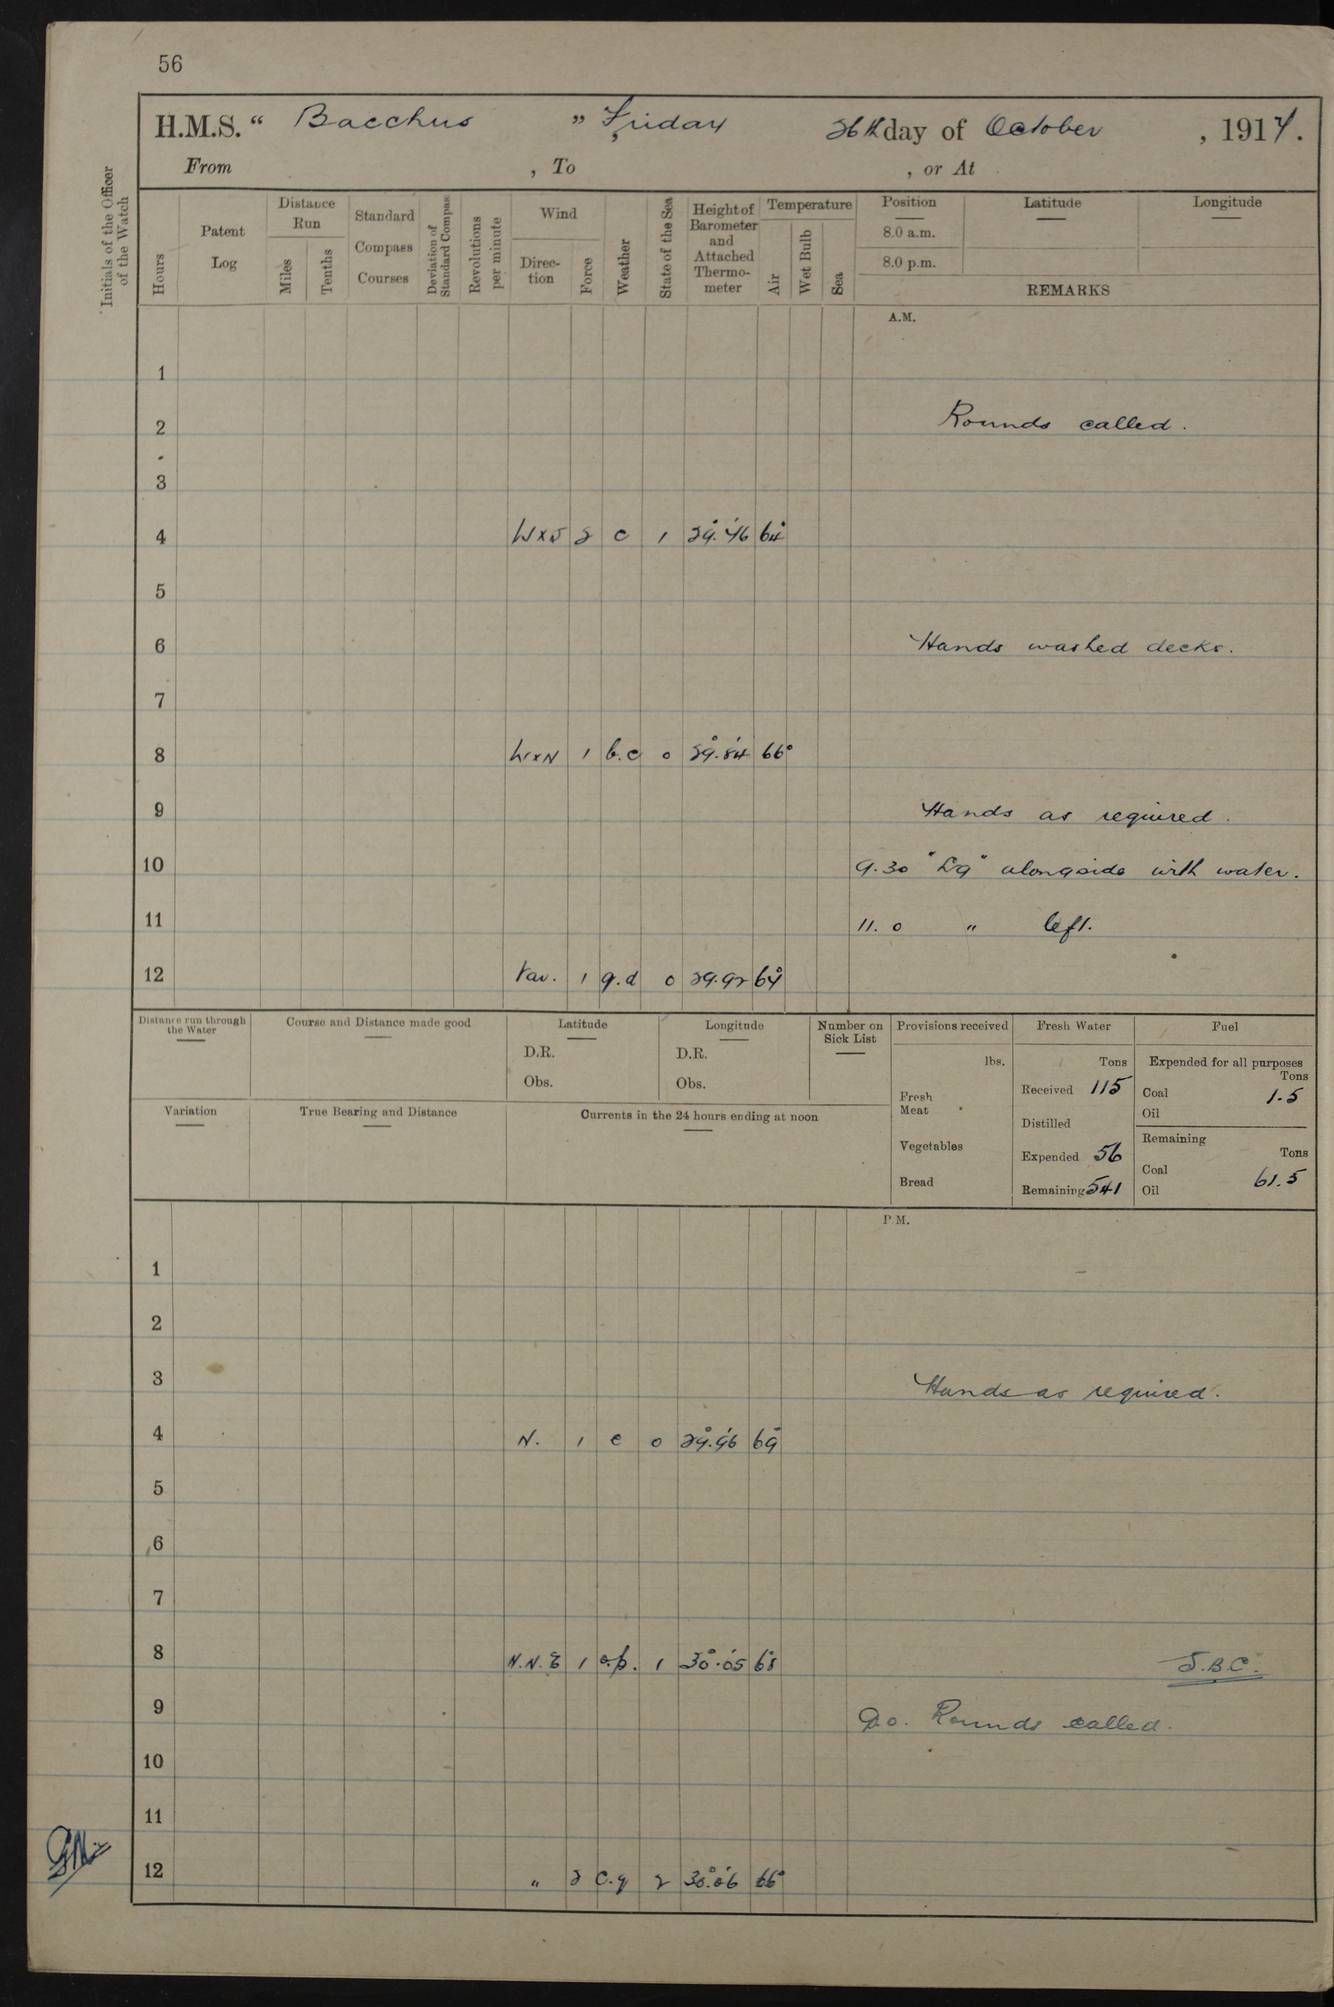 56
H.M.S. “ Bacchus ” Friday, 26th day of October, 1917.
From , To , or At
Initials of the Officer of the Watch
Hours
Patent Log
Distance Run
Miles
Tenths
Standard Compass Courses
Deviation of Standard Compass
Revolutions per minute
Wind
Direction
Force
Weather
State of the Sea
Height of Barometer and Attached Thermometer
Temperature
Air
Wet Bulb
Sea
Position
8.0 a.m.
8.0 p.m.
Latitude
Longitude
REMARKS
A.M.
1
2 Rounds called.
3
4 2 c 1 64°
5
6 Hands washed decks.
7
8 W x N 1 b.c 0 29.84 66°
9 Hands as required.
10 9.30 alongside with water.
11 11.0 " left.
12 Var. 1 0 29.92 64°
Distance run through the Water
Course and Distance made good
Latitude
D.R.
Obs.
Longitude
D.R.
Obs.
Number on Sick List
Provisions received
lbs.
Fresh Meat
Vegetables
Bread
Fresh Water
Tons
Received 115
Distilled
Expended 56
Remaining 541
Fuel
Expended for all purposes
Tons
Coal 1.5
Oil
Remaining
Tons
Coal 61.5
Oil
Variation
True Bearing and Distance
Currents in the 24 hours ending at noon
P.M.
1
2
3 Hands as required.
4 N. 1 c 0 29.96 69°
5
6
7
8 N.N.E 1 o.p. 1 30.05 68° J.B.C.
9 9.0. Rounds called.
10
11
12 " 2 c.q 2 30.06 66°